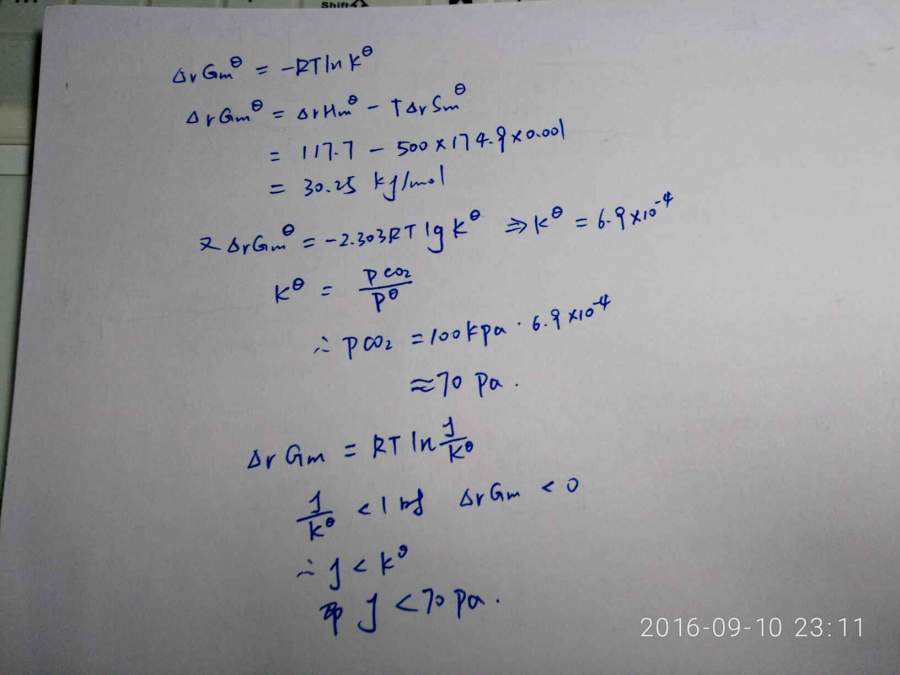 Shift
ΔrGmᶿ = -RTlnKᶿ
ΔrGmᶿ = ΔrHmᶿ - TΔrSmᶿ
= 117.7 - 500×174.9×0.001
= 30.25 kJ/mol
又 ΔrGmᶿ = -2.303RT lg Kᶿ ⇒ Kᶿ = 6.9×10⁻⁴
Kᶿ = PCO₂/Pᶿ
∴ PCO₂ = 100kpa · 6.9×10⁻⁴
≈ 70 pa.
ΔrGm = RT ln J/Kᶿ
J/Kᶿ < 1 时 ΔrGm < 0
∴ J < Kᶿ
即 J < 70 pa.
2016-09-10 23:11